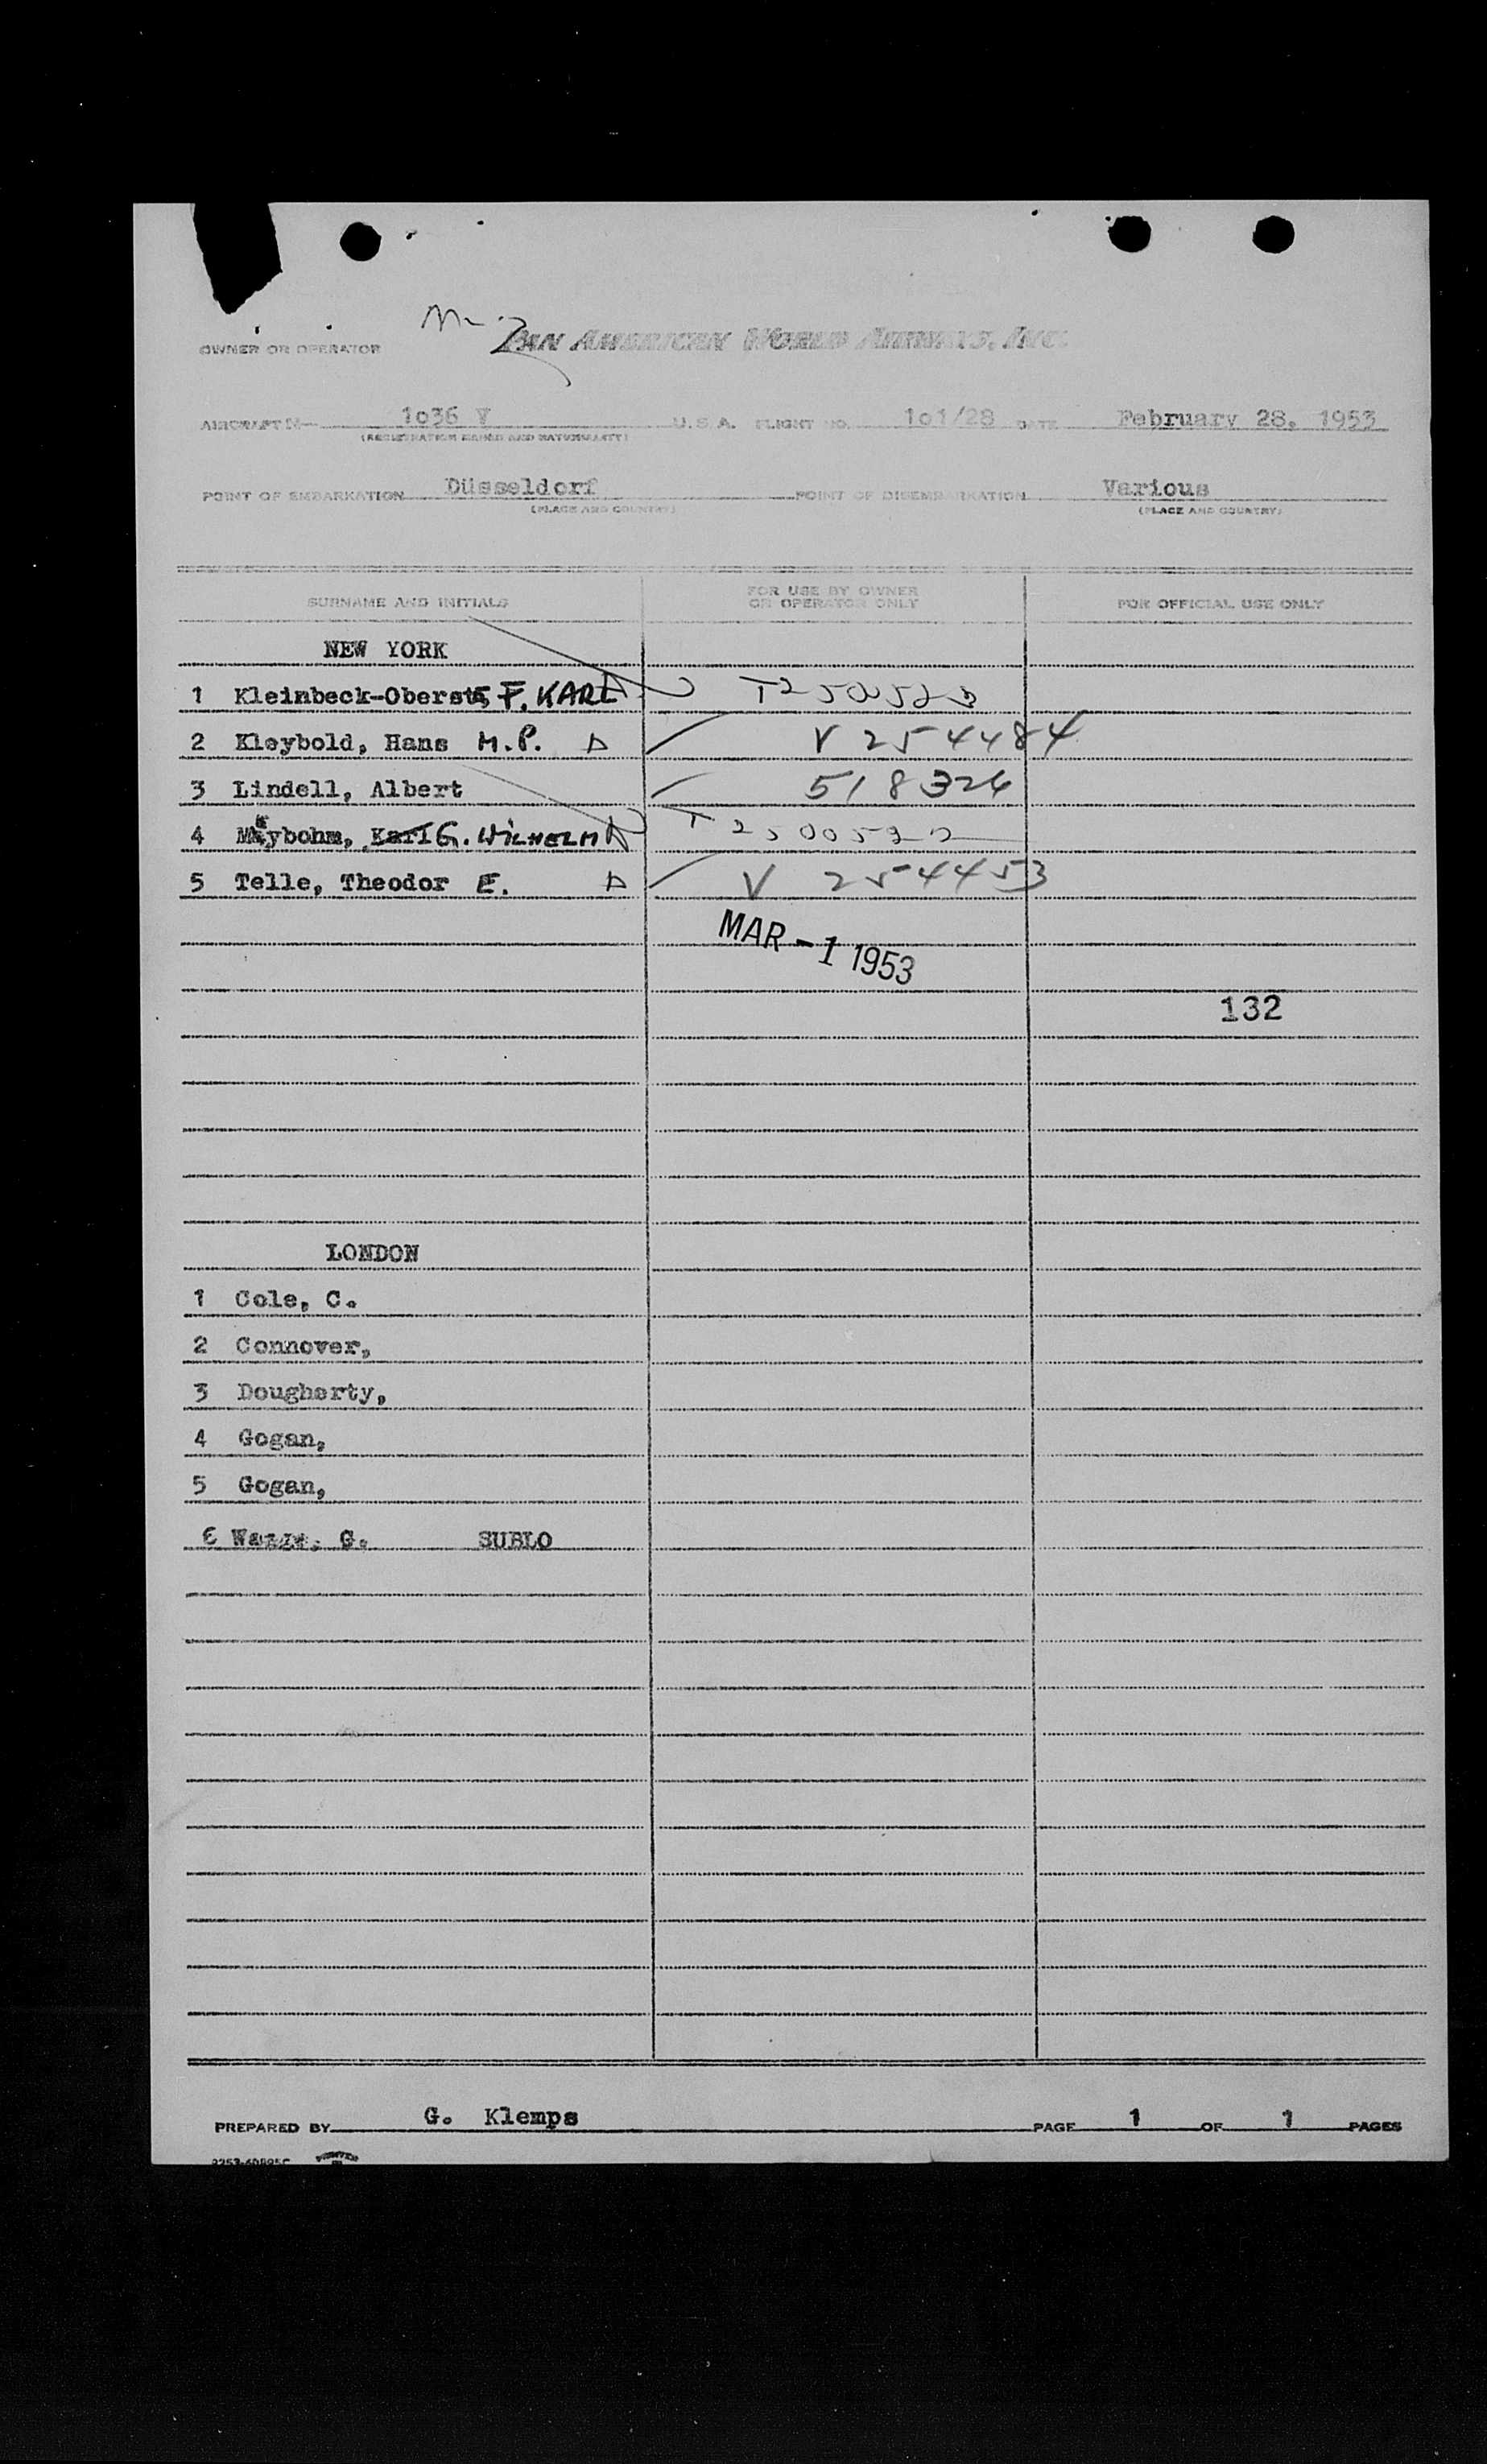 OWNER OR OPERATOR PAN AMERICAN WORLD AIRWAYS, INC.
AIRCRAFT N— 1o36 V U.S.A. FLIGHT NO. 1o1/28 DATE February 28, 1953
(REGISTRATION MARKS AND NATIONALITY)
POINT OF EMBARKATION Düsseldorf POINT OF DISEMBARKATION Various
(PLACE AND COUNTRY) (PLACE AND COUNTRY)
SURNAME AND INITIALS FOR USE BY OWNER OR OPERATOR ONLY FOR OFFICIAL USE ONLY
NEW YORK
1 Kleinbeck-Oberste, F. KARL
2 Kleybold, Hans M.P. V 254484
3 Lindell, Albert 518326
4 Meybohm, Karl G. WILHELM
5 Telle, Theodor E. V 254453
MAR -1 1953
132
LONDON
1 Cole, C.
2 Connover,
3 Dougherty,
4 Gogan,
5 Gogan,
6 G. SUBLO
PREPARED BY G. Klemps PAGE 1 OF 1 PAGES